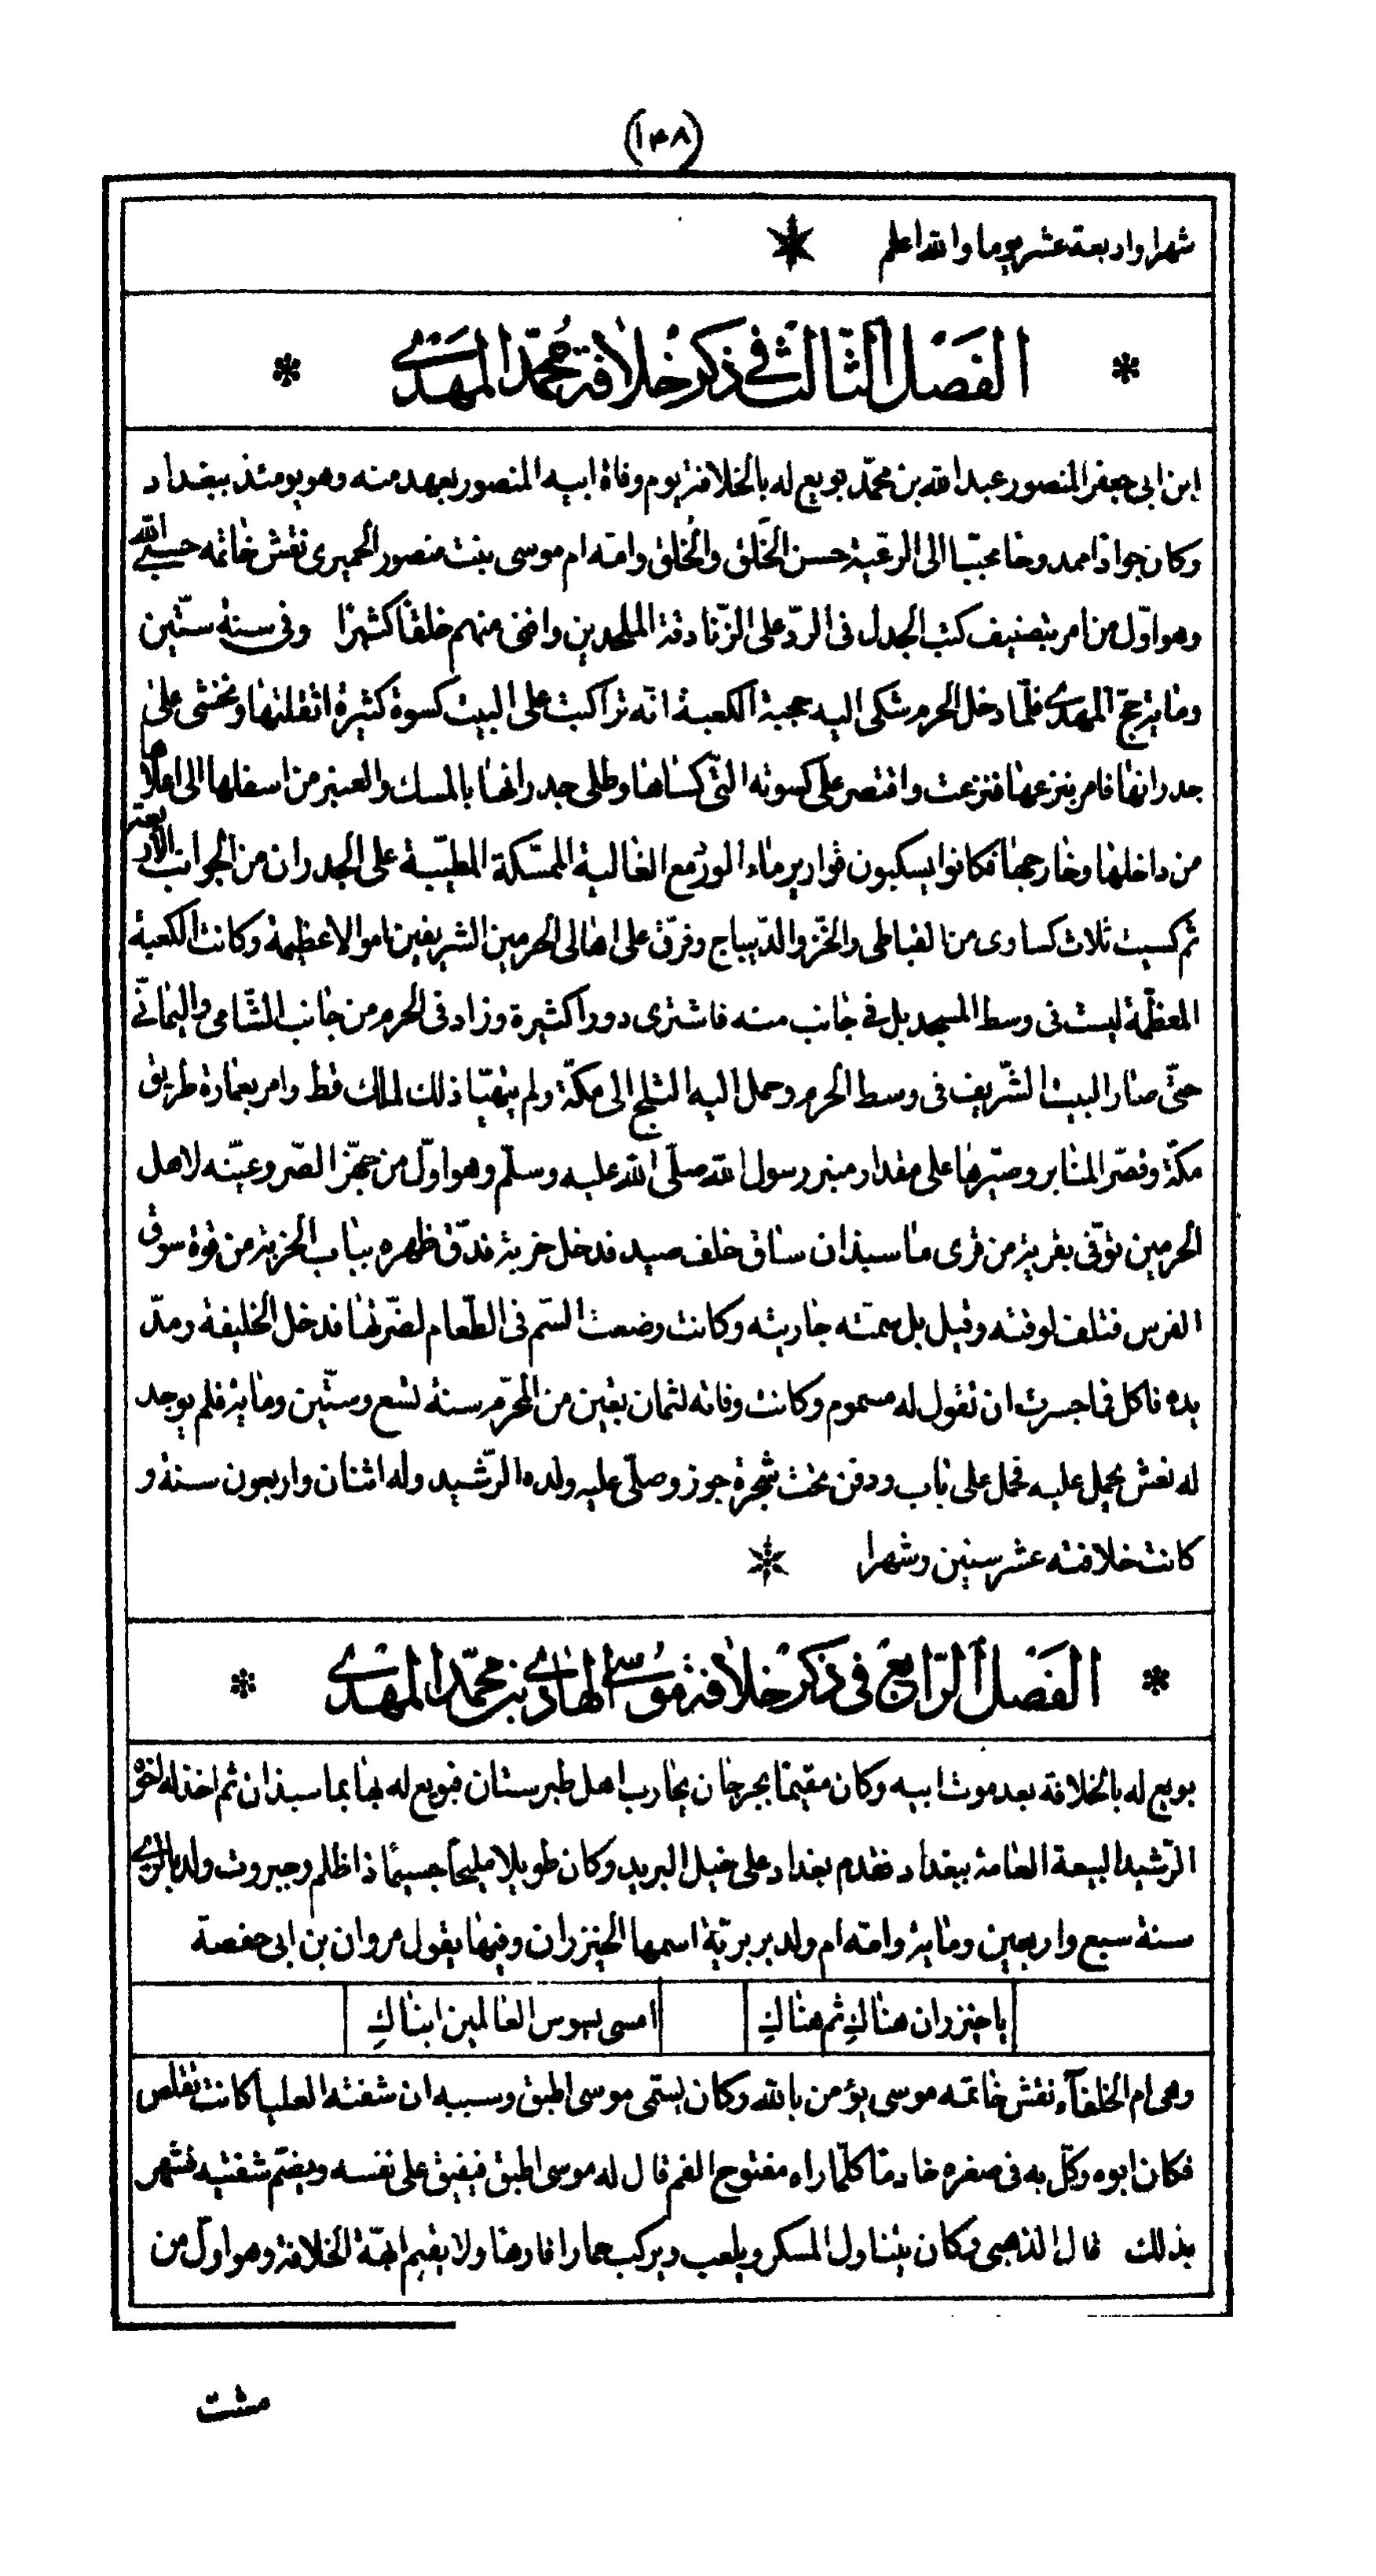 (١٤٨)
شهرا واربعة عشر يوما والله اعلم
الفصل الثالث في ذكر خلافة محمد المهدي
ابن ابى جعفر المنصور عبد الله بن محمّد بويع له بالخلافة يوم وفاة ابيه المنصور بعهد منه وهو يومئذ ببغداد
وكان جوادا ممدوحا محببّا الى الرعّية حسن الخَلق والخُلق وامّه ام موسى بنت منصور الحميرى نقش خاتمه حسبي الله
وهو اوّل من امر بتصنيف كتب الجدل فى الردّ على الزّنادقة الملحدين وافنى منهم خلقا كثيرا وفى سنة ستّين
وماية حجّ المهدي فلمّا دخل الحرم شكى اليه حجبة الكعبة انّه تراكبت على البيت كسوة كثيرة اثقلتها ونخشى على
جدرانها فامر بنزعها فنزعت واقتصر على كسوته التّى كساها وطلى جدرانها بالمسك والعنبر من اسفلها الى اعلاها
من داخلها وخارجها فكانوا يسكبون قوارير ماء الورد مع الغالية الممسّكة المطيّبة على الجدران من الجوانب الاربعة
ثم كسيت ثلاث كساوى من القباطى والخزّ والدّيباج وفرّق على اهالى الحرمين الشريفين اموالا عظيمة وكانت الكعبة
المعظّمة ليست فى وسط المسجد بل في جانب منه فاشترى دورا كثيرة وزاد فى الحرم من جانب الشّامى واليمانّي
حتّى صار البيت الشّريف فى وسط الحرم وحمل اليه الثلج الى مكّة ولم يتهيّا ذلك لملك قط وامر بعمارة طريق
مكّة وقصّر المنابر وصيّرها على مقدار منبر رسول الله صلّى الله عليه وسلّم وهو اوّل من جهّز الصّر وعيّنه لاهل
الحرمين توفّى بقرية من قرى ماسبذان ساق خلف صيد فدخل خربة فدّق ظهره بباب الخربة من قوة سوق
الفرس فتلف لوقته وقيل بل سمّته جاريته وكانت وضعت السّم فى الطّعام لضرّتها فدخل الخليفة ومدّ
يده فاكل فما جسرت ان تقول له مسموم وكانت وفاته لثمان بقين من المحرّم سنة تسع وستّين وماية فلم يوجد
له نعش يحمل عليه فحمل على باب ودفن تحت شجرة جوز وصلّى عليه ولده الرّشيد وله اثنان واربعون سنة و
كانت خلافته عشر سنين وشهرا
الفصل الرّابع فى ذكر خلافة موسى الهادي بن محمّد المهدي
بويع له بالخلافة بعد موت ابيه وكان مقيما بجرجان يحارب اهل طبرستان فبويع له بها بماسبذان ثم اخذ له اخوه
الرّشيد البيعة العامة ببغداد فقدم بغداد على خيل البريد وكان طويلا مليحا جسيما ذا ظلم وجبروت ولد بالري
سنة سبع واربعين وماية وامّه ام ولد بربريّة اسمها الخيزران وفيها يقول مروان بن ابى حفصة
يا خيزران هناكِ ثم هناكِ امسى يسوس العالمين ابناكِ
وهى ام الخلفآء نقش خاتمه موسى يؤمن بالله وكان يسمّى موسى اطبق وسببه ان شفته العليا كانت تقلص
فكان ابوه وكّل به فى صغره خادما كلّما راه مفتوح الفم قال له موسى اطبق فيفيق على نفسه ويضمّ شفتيه فشهر
بذلك قال الذهبى وكان يتناول المسكر ويلعب ويركب حمارا فارها ولا يقيم ابهّة الخلافة وهو اول من
مشت